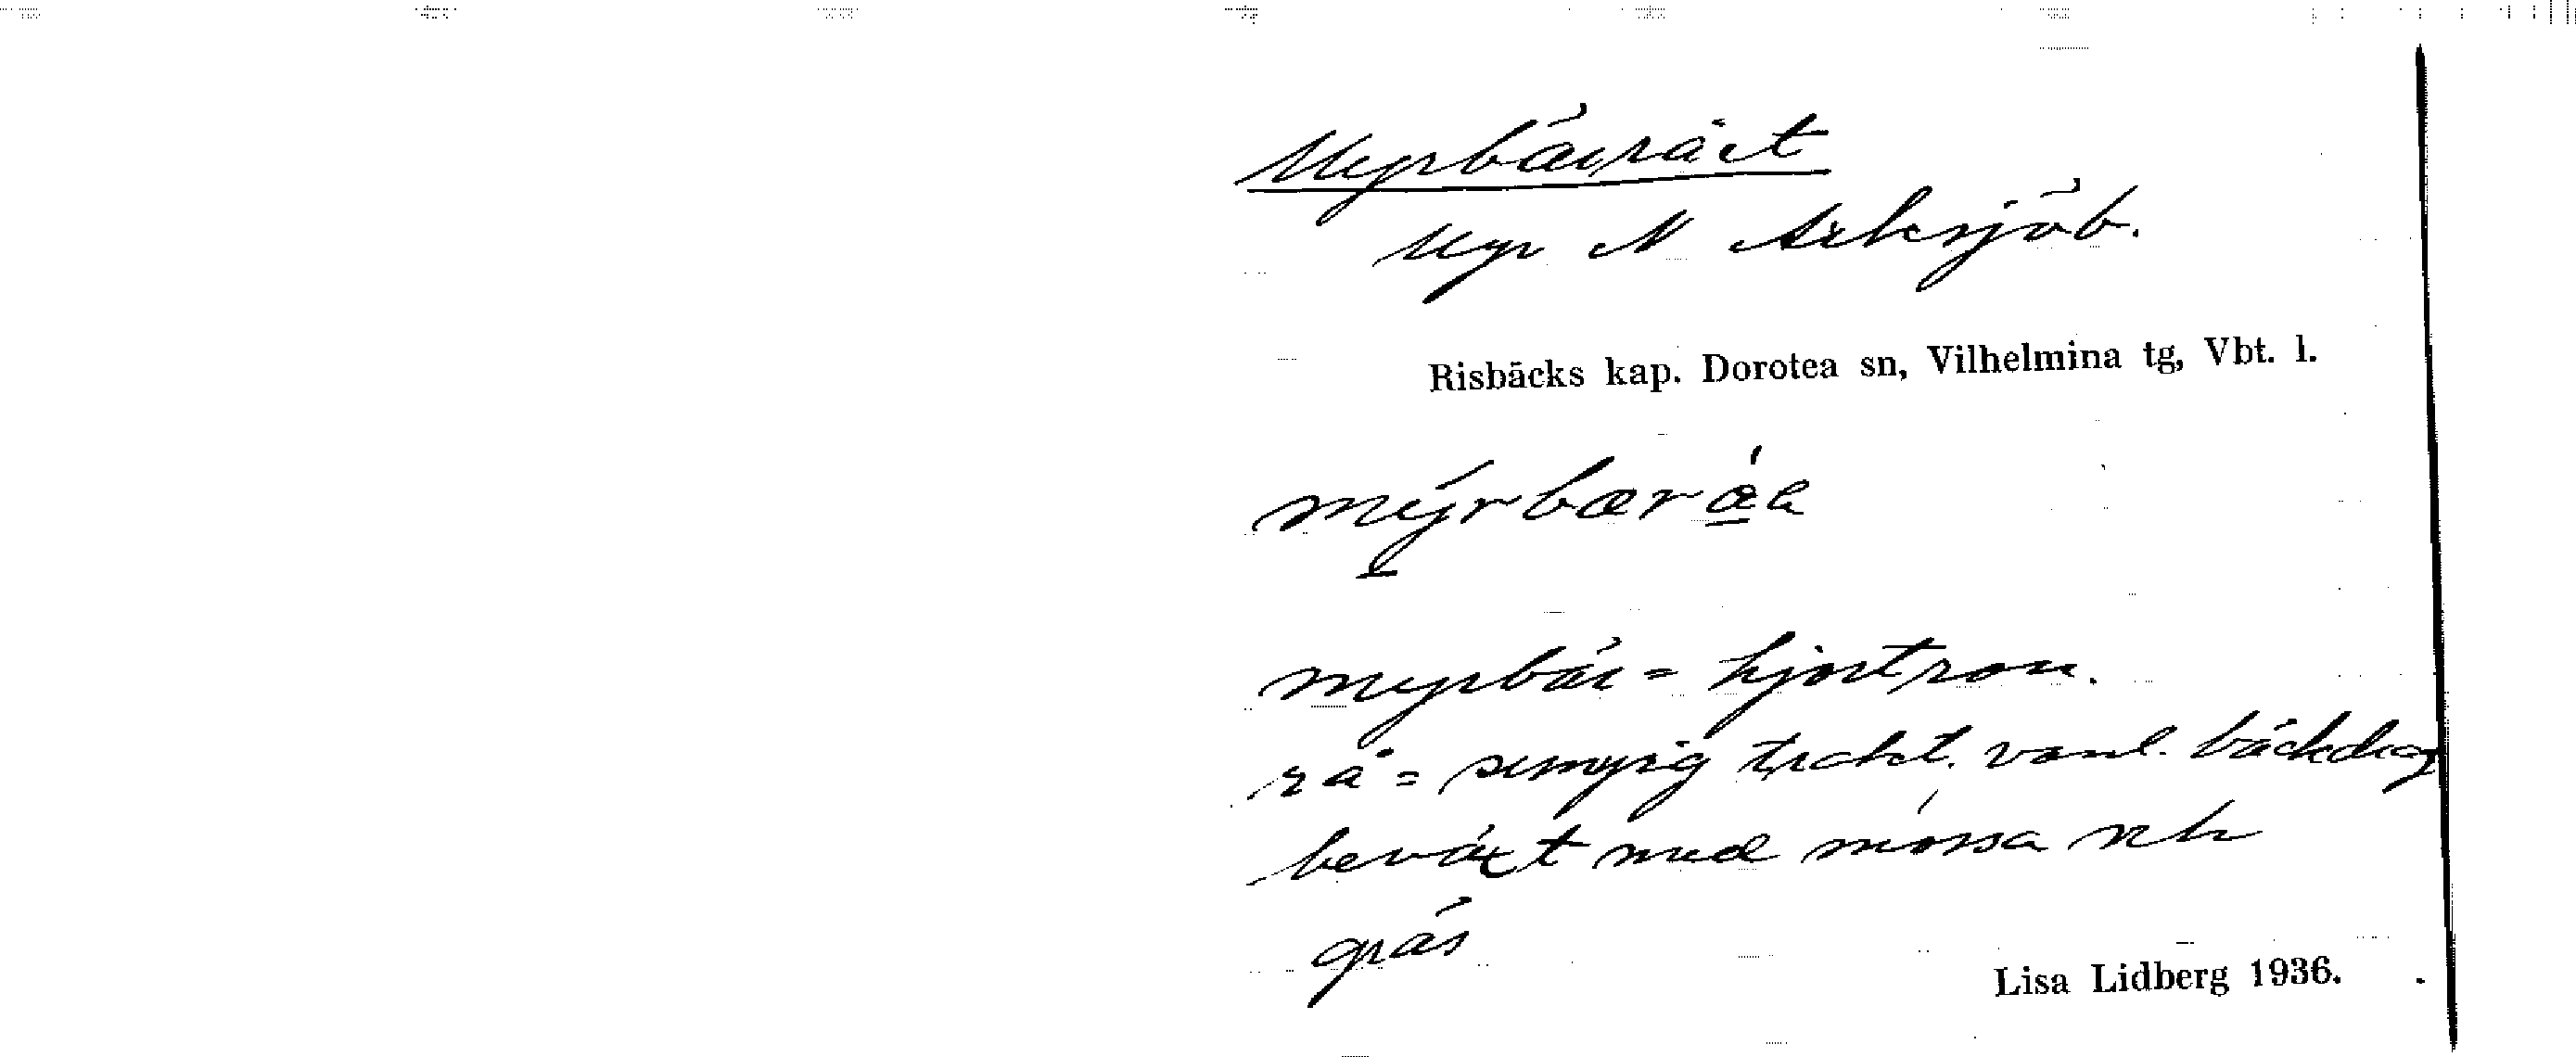 Myrbärrået
Myr N Arksjöb.
Risbäcks kap. Dorotea sn, Vilhelmina tg, Vbt. l.
mýrbæra
myrbär = hjortron.
rå = sumpig trakt, vanl. bäckdrag
beväxt med mossa och
gräs
Lisa Lidberg 1936.